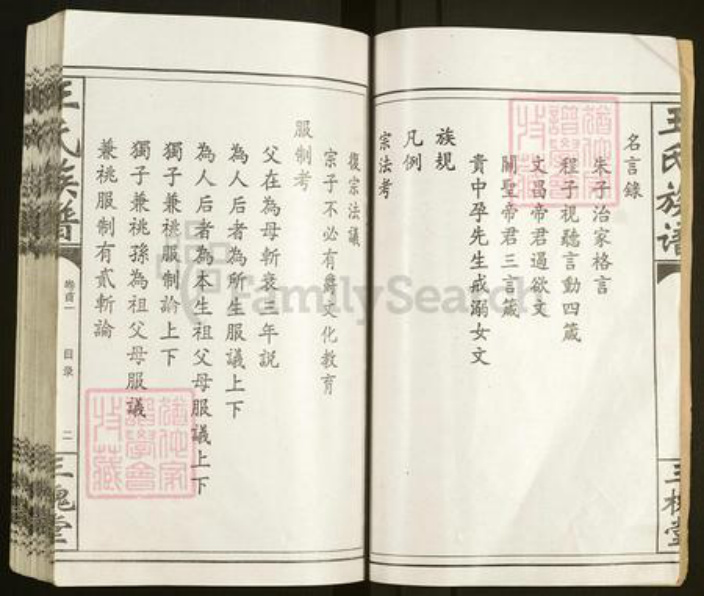 王氏族譜
三槐堂
名言錄
朱子治家格言
程子視聽言動四箴
文昌帝君遏欲文
關聖帝君三言箴
貴中孚先生戒溺女文
族規
凡例
宗法考
復宗法議
宗子不必有爵文化教育
服制考
父在為母斬衰三年説
為人后者為所生服議上下
為人后者為本生祖父母服議上下
獨子兼祧服制論上下
獨子兼祧孫為祖父母服議
兼祧服制有貳斬論
王氏族譜
卷首一
目录
二
三槐堂
FamilySearch